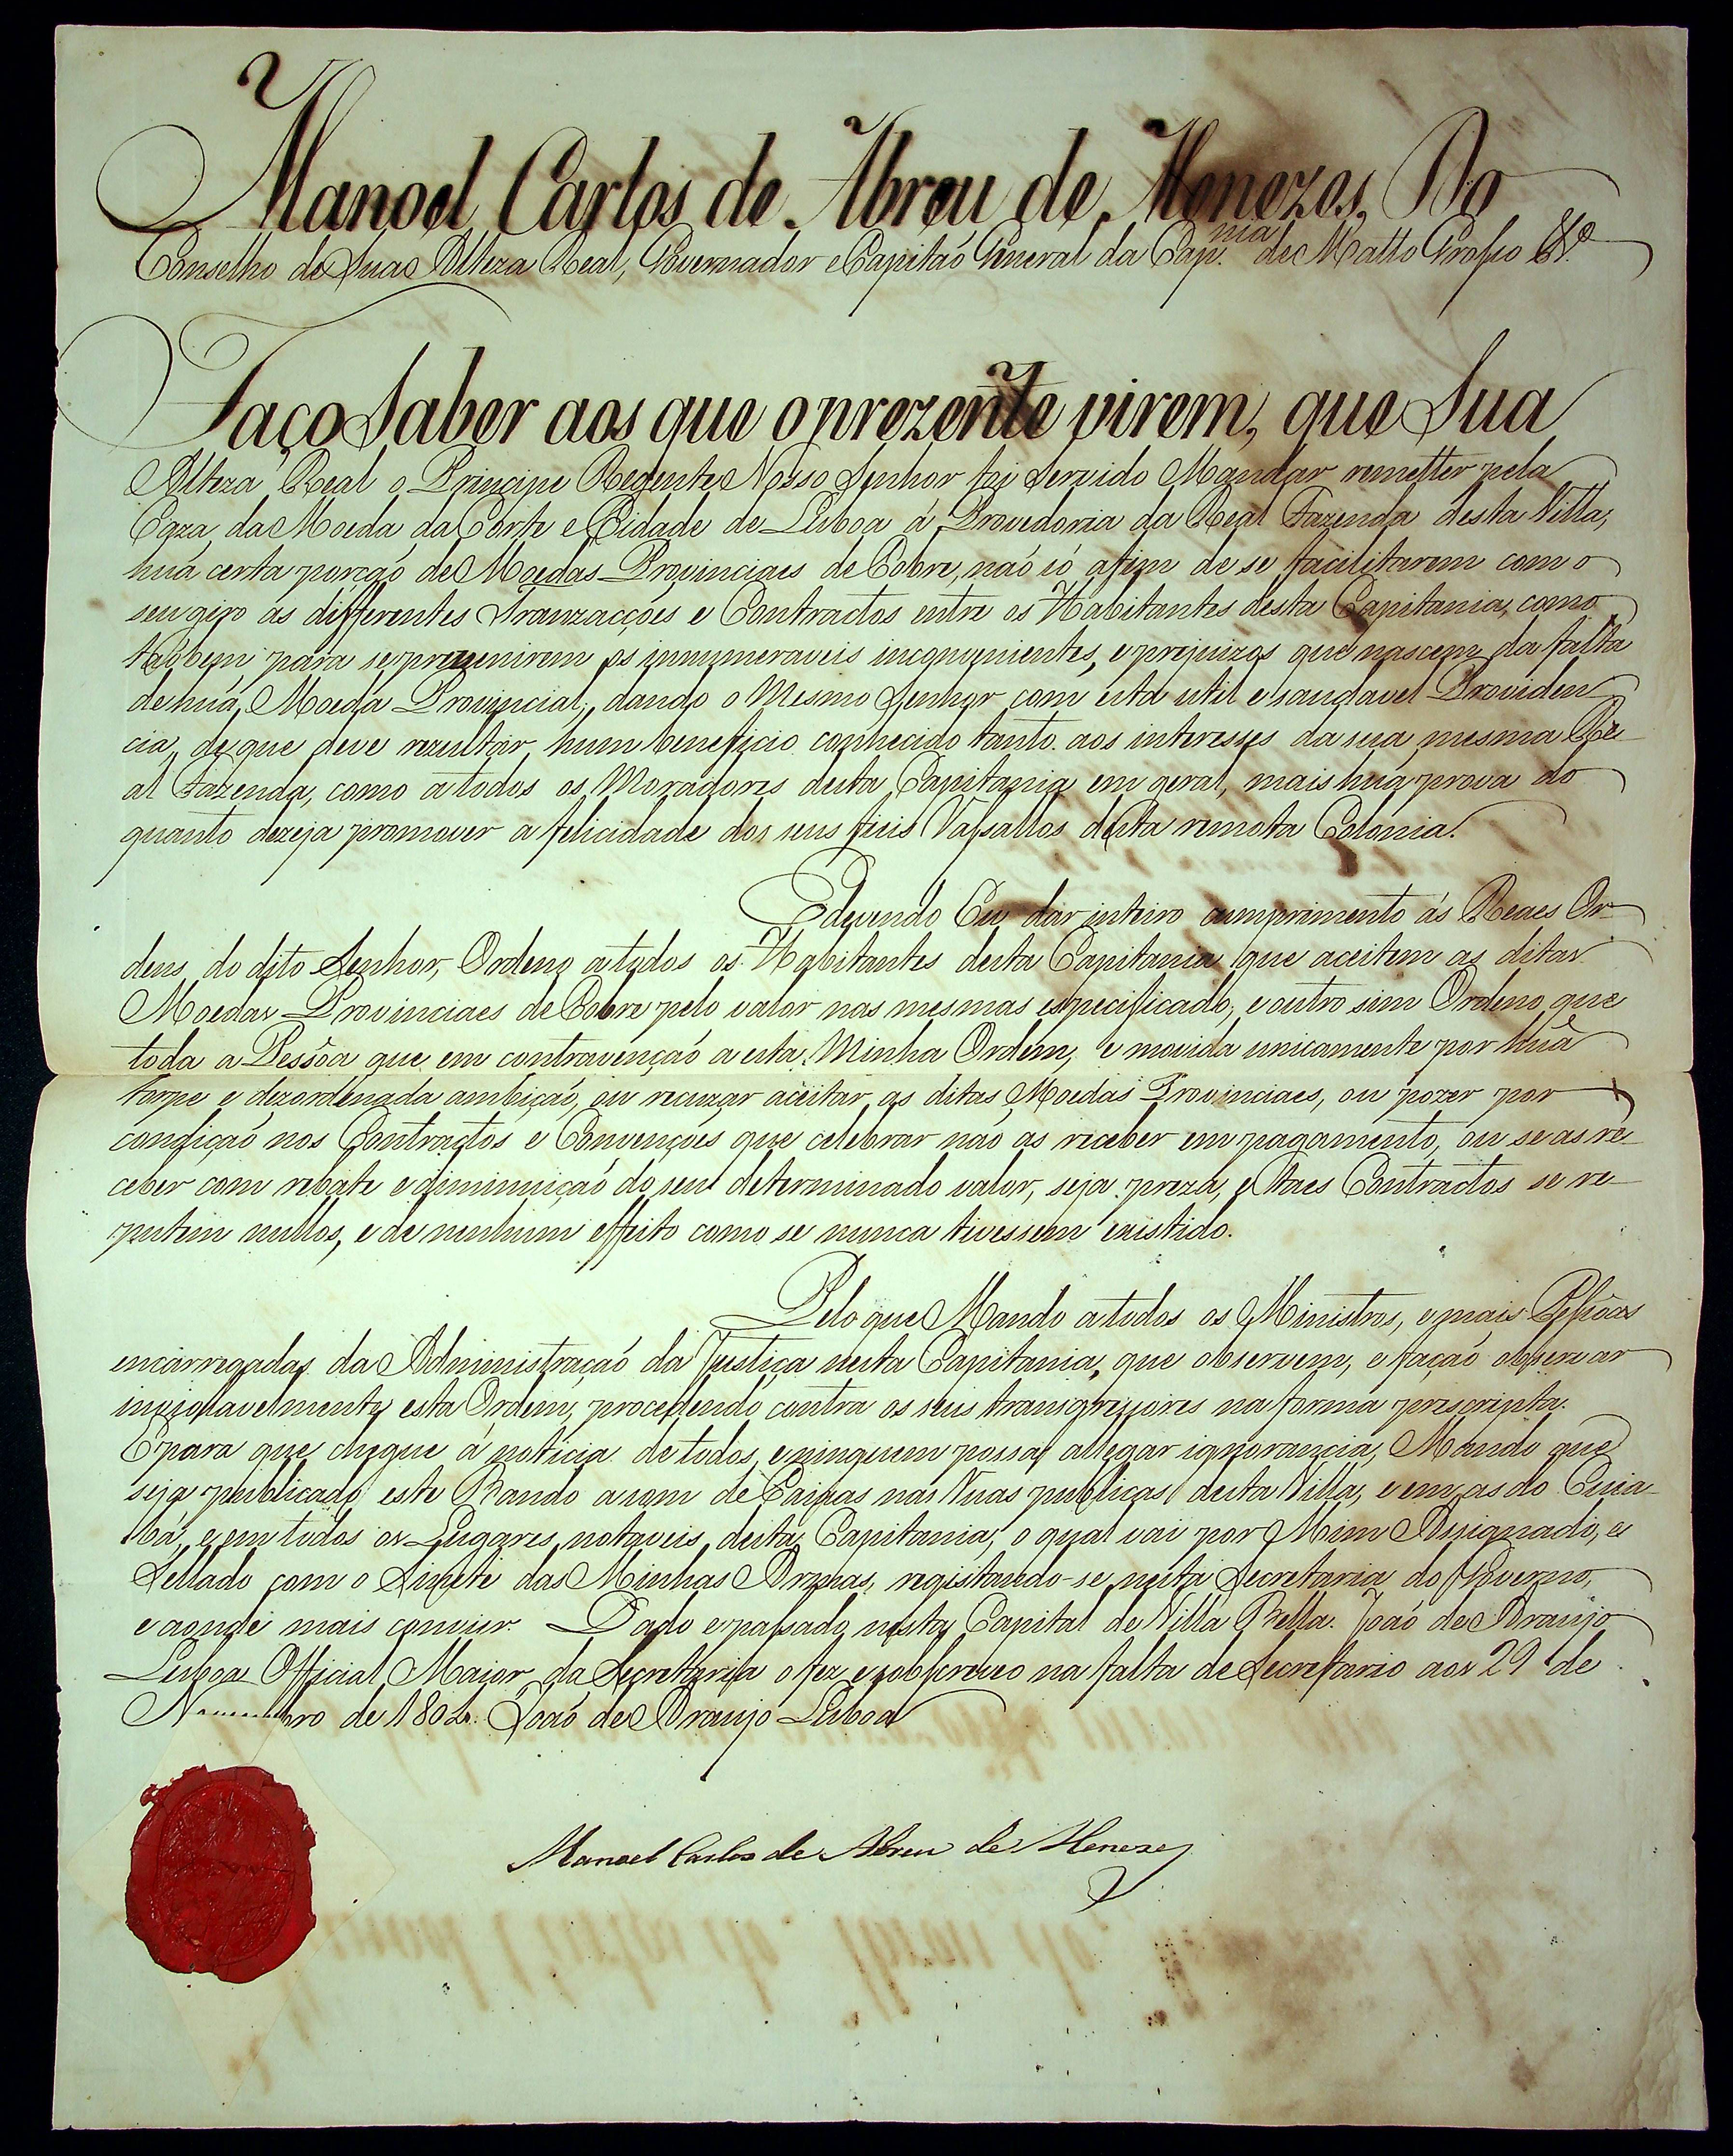 Manoel Carlos de Abreu de Menezes, Do
Conselho de Sua Alteza Real, Governador e Capitaõ General da Cap.nia de Matto Grosso &.ª
Faço Saber aos que o prezente virem, que Sua
Alteza Real o Principe Regente Nosso Senhor foi Servido Mandar remetter pela
Caza da Moeda da Corte e Cidade de Lisboa á Provedoria da Real Fazenda desta Villa,
huã certa porçaõ de Moedas Provinciaes de Cobre, naõ só afim de se facilitarem com o
seu giro as differentes Tranzacções e Contractos entre os Habitantes desta Capitania, como
taõbem para se prevenirem os innumeraveis inconvenientes, e prejuizos que nascem da falta
de huã Moeda Provincial; dando o Mesmo Senhor com esta util e saudavel Providen
cia, de que deve rezultar hum beneficio conhecido tanto aos interesses da sua mesma Re-
al Fazenda, como a todos os Moradores desta Capitania em geral, mais huã prova do
quanto dezeja promover a felicidade dos seus fieis Vassallos desta remota Colonia.
E devendo Eu dar inteiro cumprimento ás Reaes Or-
dens do dito Senhor, Ordeno a todos os Habitantes desta Capitania que aceitem as ditas
Moedas Provinciaes de Cobre pelo valor nas mesmas especificado; e outro sim Ordeno que
toda a Pessôa que em contravençaõ a esta Minha Ordem, e movida unicamente por huã
torpe e dezordenada ambiçaõ, ou recuzar aceitar as ditas Moedas Provinciaes, ou pozer por
condiçaõ nos Contractos e Convenções que celebrar naõ as receber em pagamento, ou se as re-
ceber com rebate e diminuiçaõ do seu determinado valor, seja preza, e taes Contractos se re-
putem nullos, e de nenhum effeito como se nunca tivessem existido.
Pelo que Mando a todos os Ministros, e mais Pessôas
encarregadas da Administraçaõ da Justiça nesta Capitania, que observem, e façaõ observar
inviolavelmente esta Ordem, procedendo contra os seus transgressores na forma prescripta.
E para que chegue á noticia de todos, e ninguem possa allegar ignorancia, Mando que
seja publicado este Bando a som de Caixas nas Ruas publicas desta Villa, e em as do Cuia-
bá, e em todos os Lugares notaveis desta Capitania, o qual vai por Mim Assignado, e
Sellado com o Sinete das Minhas Armas, registando-se nesta Secretaria do Governo,
e aonde mais convier. Dado e passado nesta Capital de Villa Bella. Joaõ de Araujo
Lisboa Official Maior da Secretaria o fez e sobscreveo na falta de Secretario aos 29 de
Novembro de 1802. Joaõ de Araujo Lisboa
Manoel Carlos de Abreu de Menezes